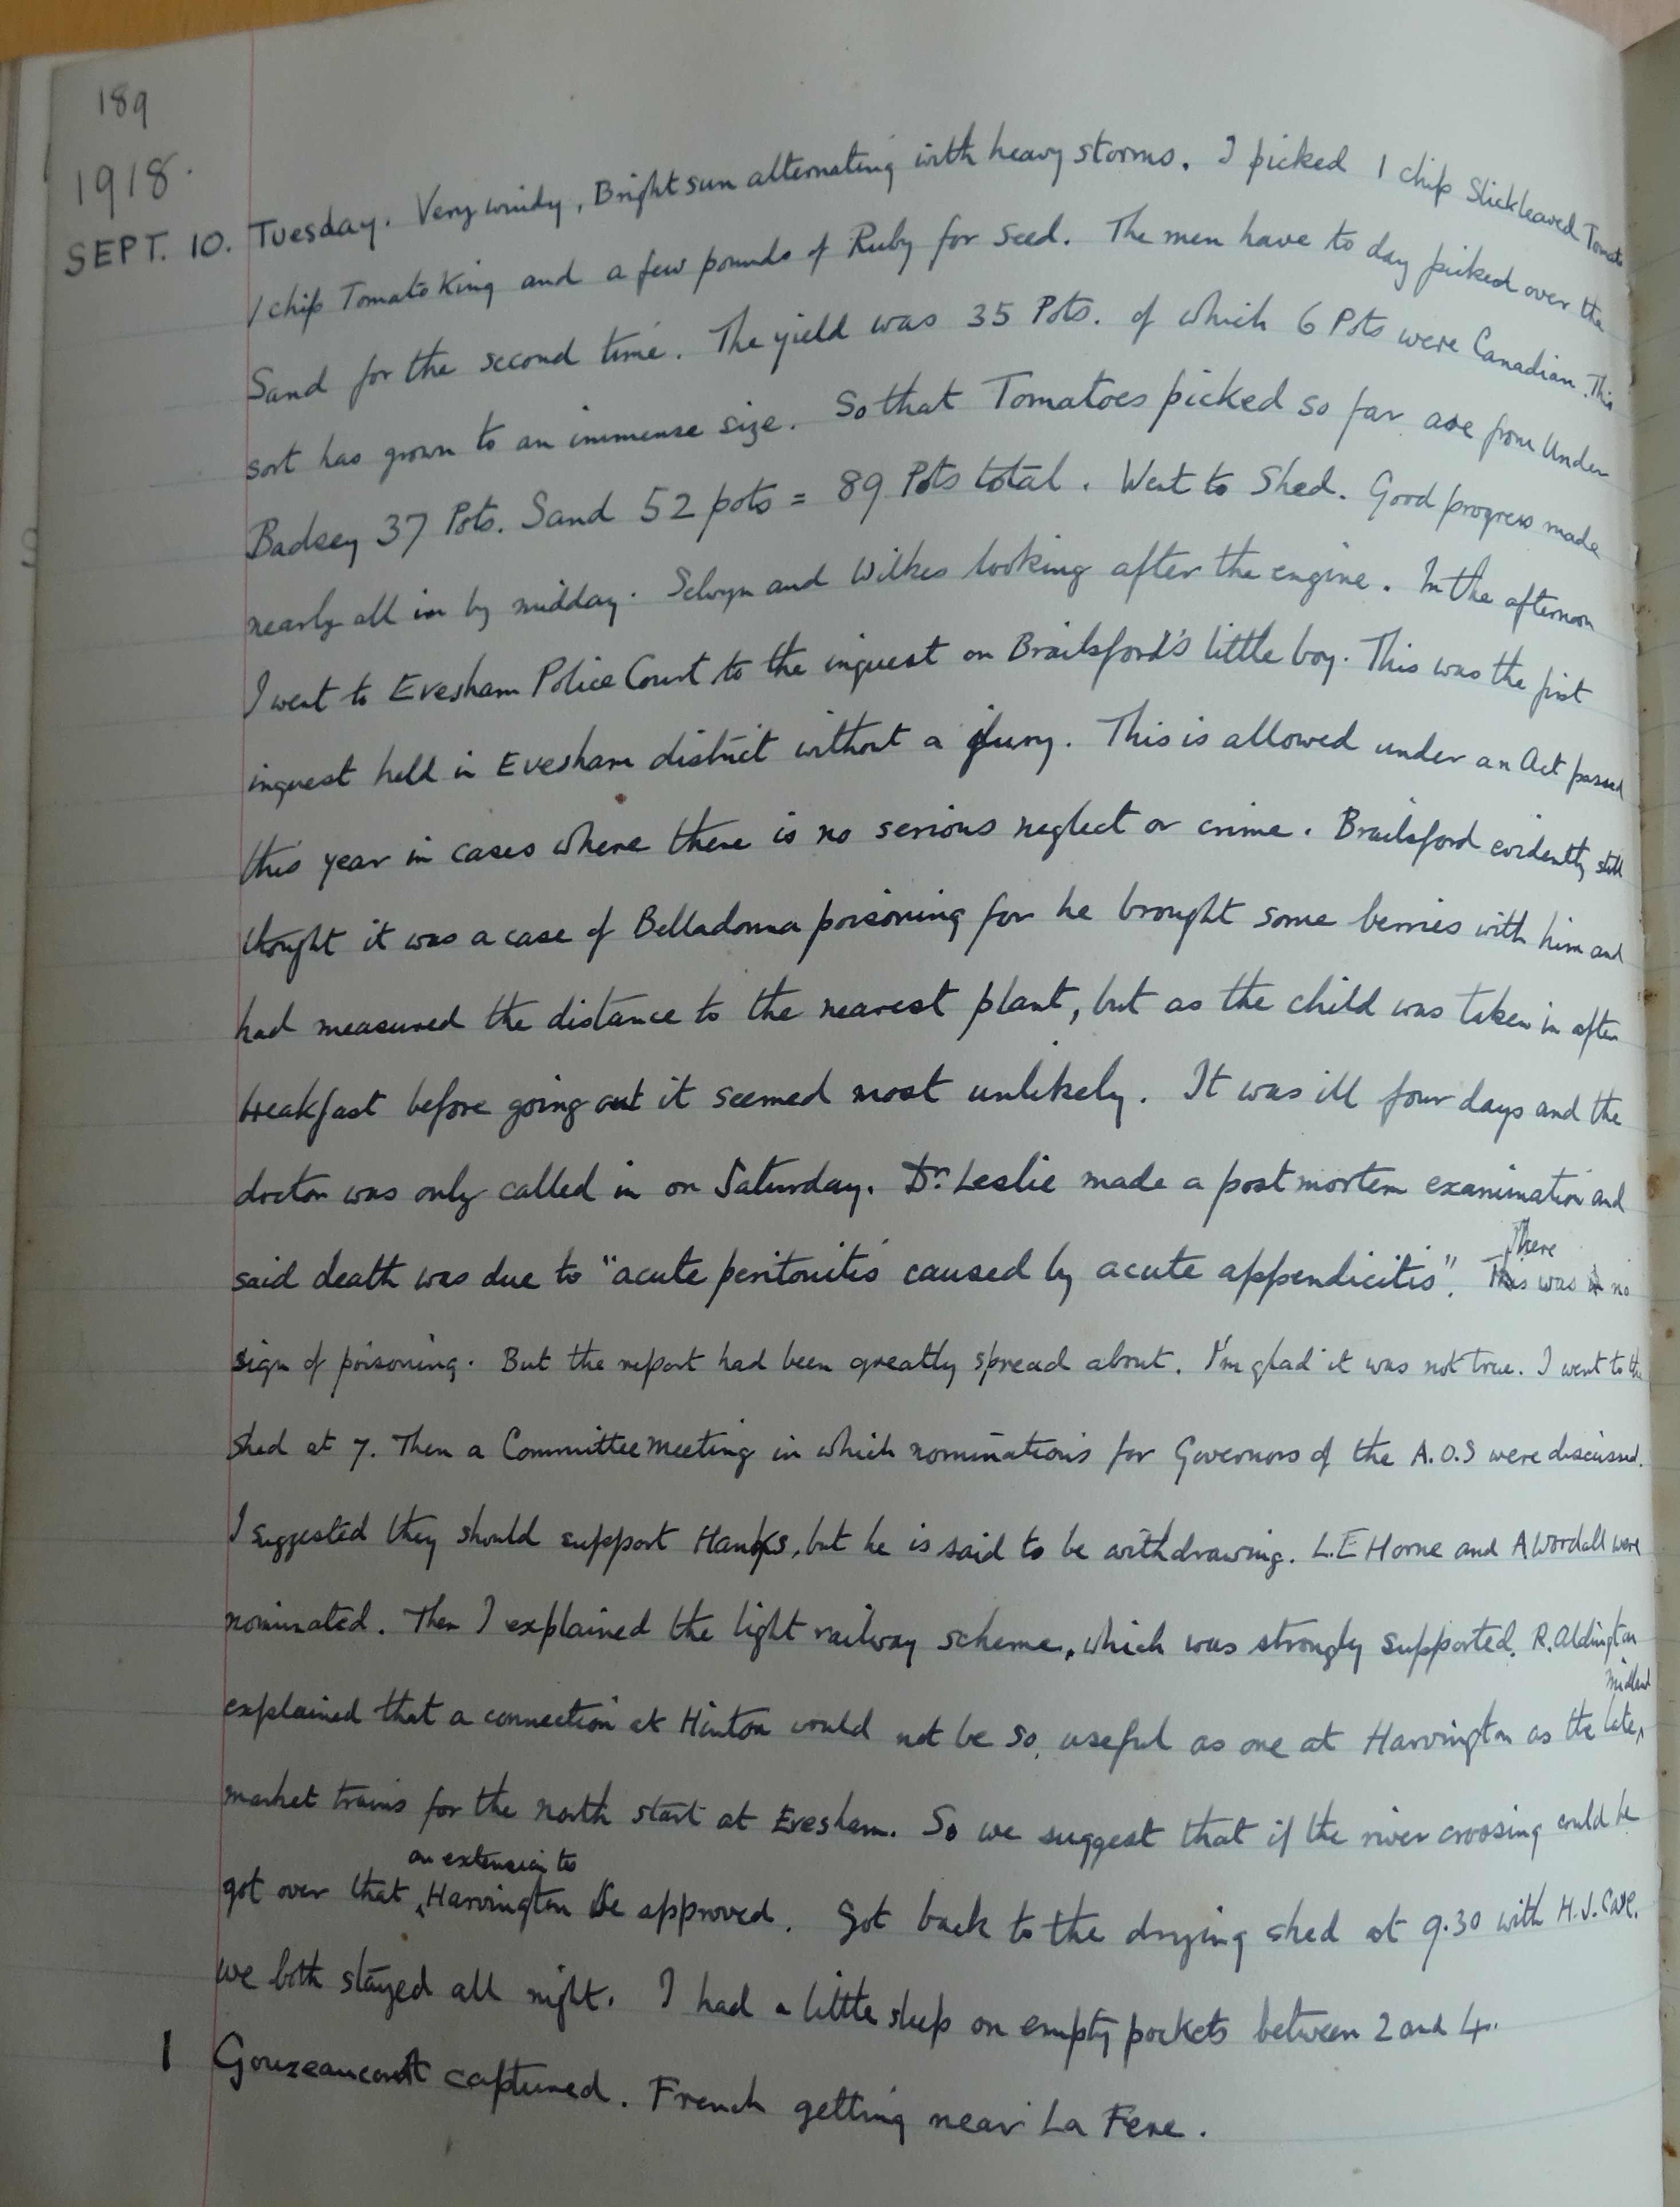 189
1918.
SEPT. 10. Tuesday. Very windy, Bright sun alternating with heavy storms. I picked 1 chip Slickleaved Tomato
1 chip Tomato King and a few pounds of Ruby for seed. The men have to day picked over the
Sand for the second time. The yield was 35 Pots. of which 6 Pots were Canadian. This
sort has grown to an immense size. So that Tomatoes picked so far are from Under
Badsey 37 Pots. Sand 52 pots = 89 Pots total. Went to Shed. Good progress made
nearly all in by midday. Selwyn and Wilkes looking after the engine. In the afternoon
I went to Evesham Police Court to the inquest on Brailsford's little boy. This was the first
inquest held in Evesham district without a jury. This is allowed under an Act passed
this year in cases where there is no serious neglect or crime. Brailsford evidently still
thought it was a case of Belladonna poisoning for he brought some berries with him and
had measured the distance to the nearest plant, but as the child was taken in after
breakfast before going out it seemed most unlikely. It was ill four days and the
doctor was only called in on Saturday. Dr. Leslie made a post mortem examination and
said death was due to "acute peritonitis caused by acute appendicitis". There was no
sign of poisoning. But the report had been greatly spread about. I'm glad it was not true. I went to the
shed at 7. Then a Committee meeting in which nominations for Governors of the A.O.S were discussed.
I suggested they should support Hanks, but he is said to be withdrawing. L.E Horne and A Wordall were
nominated. Then I explained the light railway scheme, which was strongly supported. R. Aldington
explained that a connection at Hinton would not be so useful as one at Harvington as the late midland
market trains for the north start at Evesham. So we suggest that if the river crossing could be
got over that an extension to Harvington be approved. Got back to the drying shed at 9.30 with H.J. Cave.
we both stayed all night. I had a little sleep on empty pockets between 2 and 4.
1 Gouzeaucourt captured. French getting near La Fere.